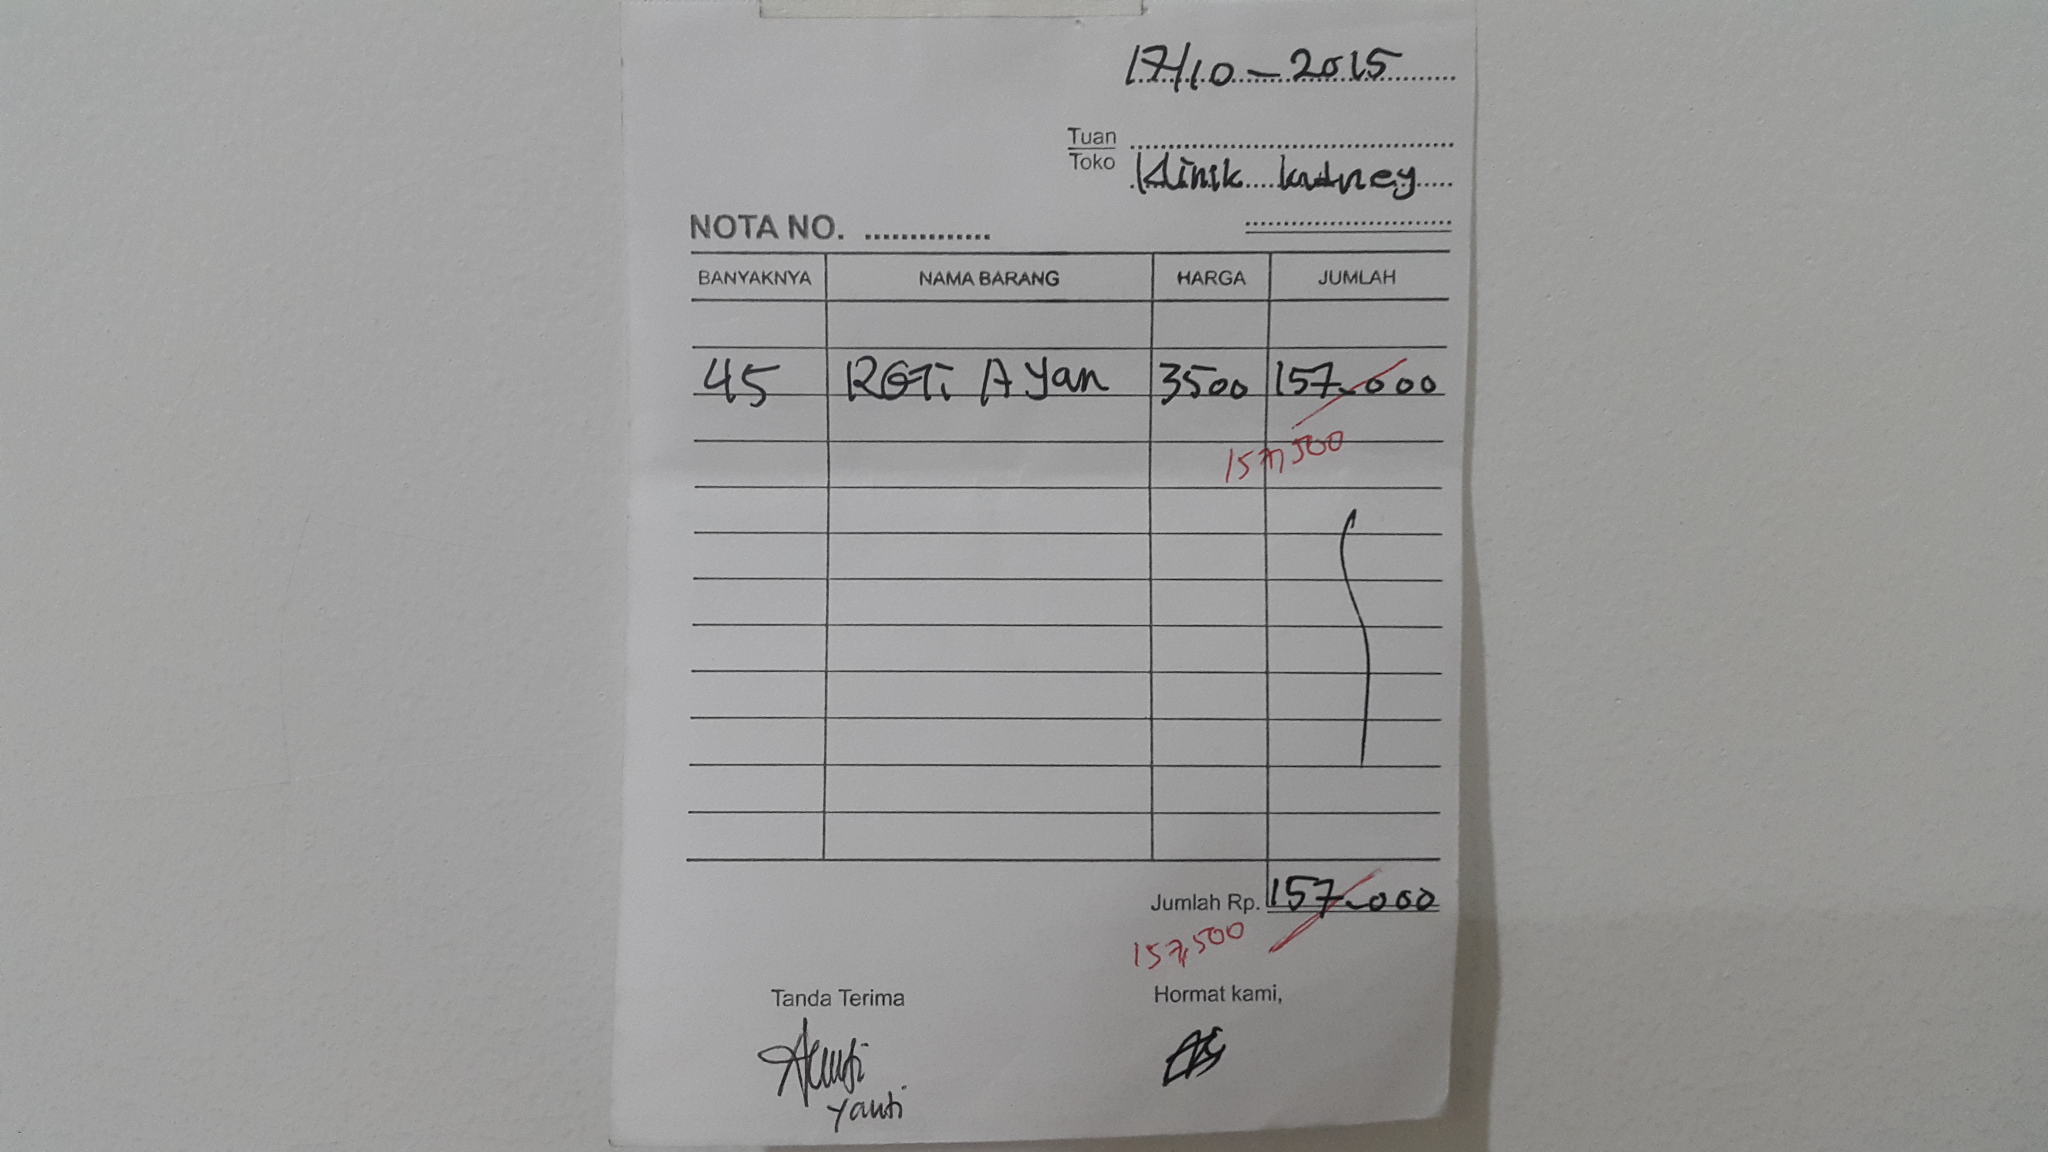 17/10-2015
Tuan
Toko Klinik kidney
NOTA NO. ..............
BANYAKNYA NAMA BARANG HARGA JUMLAH
45 ROTi AYan 3500 157.000
157,500
Jumlah Rp. 157.000
157,500
Tanda Terima Hormat kami,
Yanti